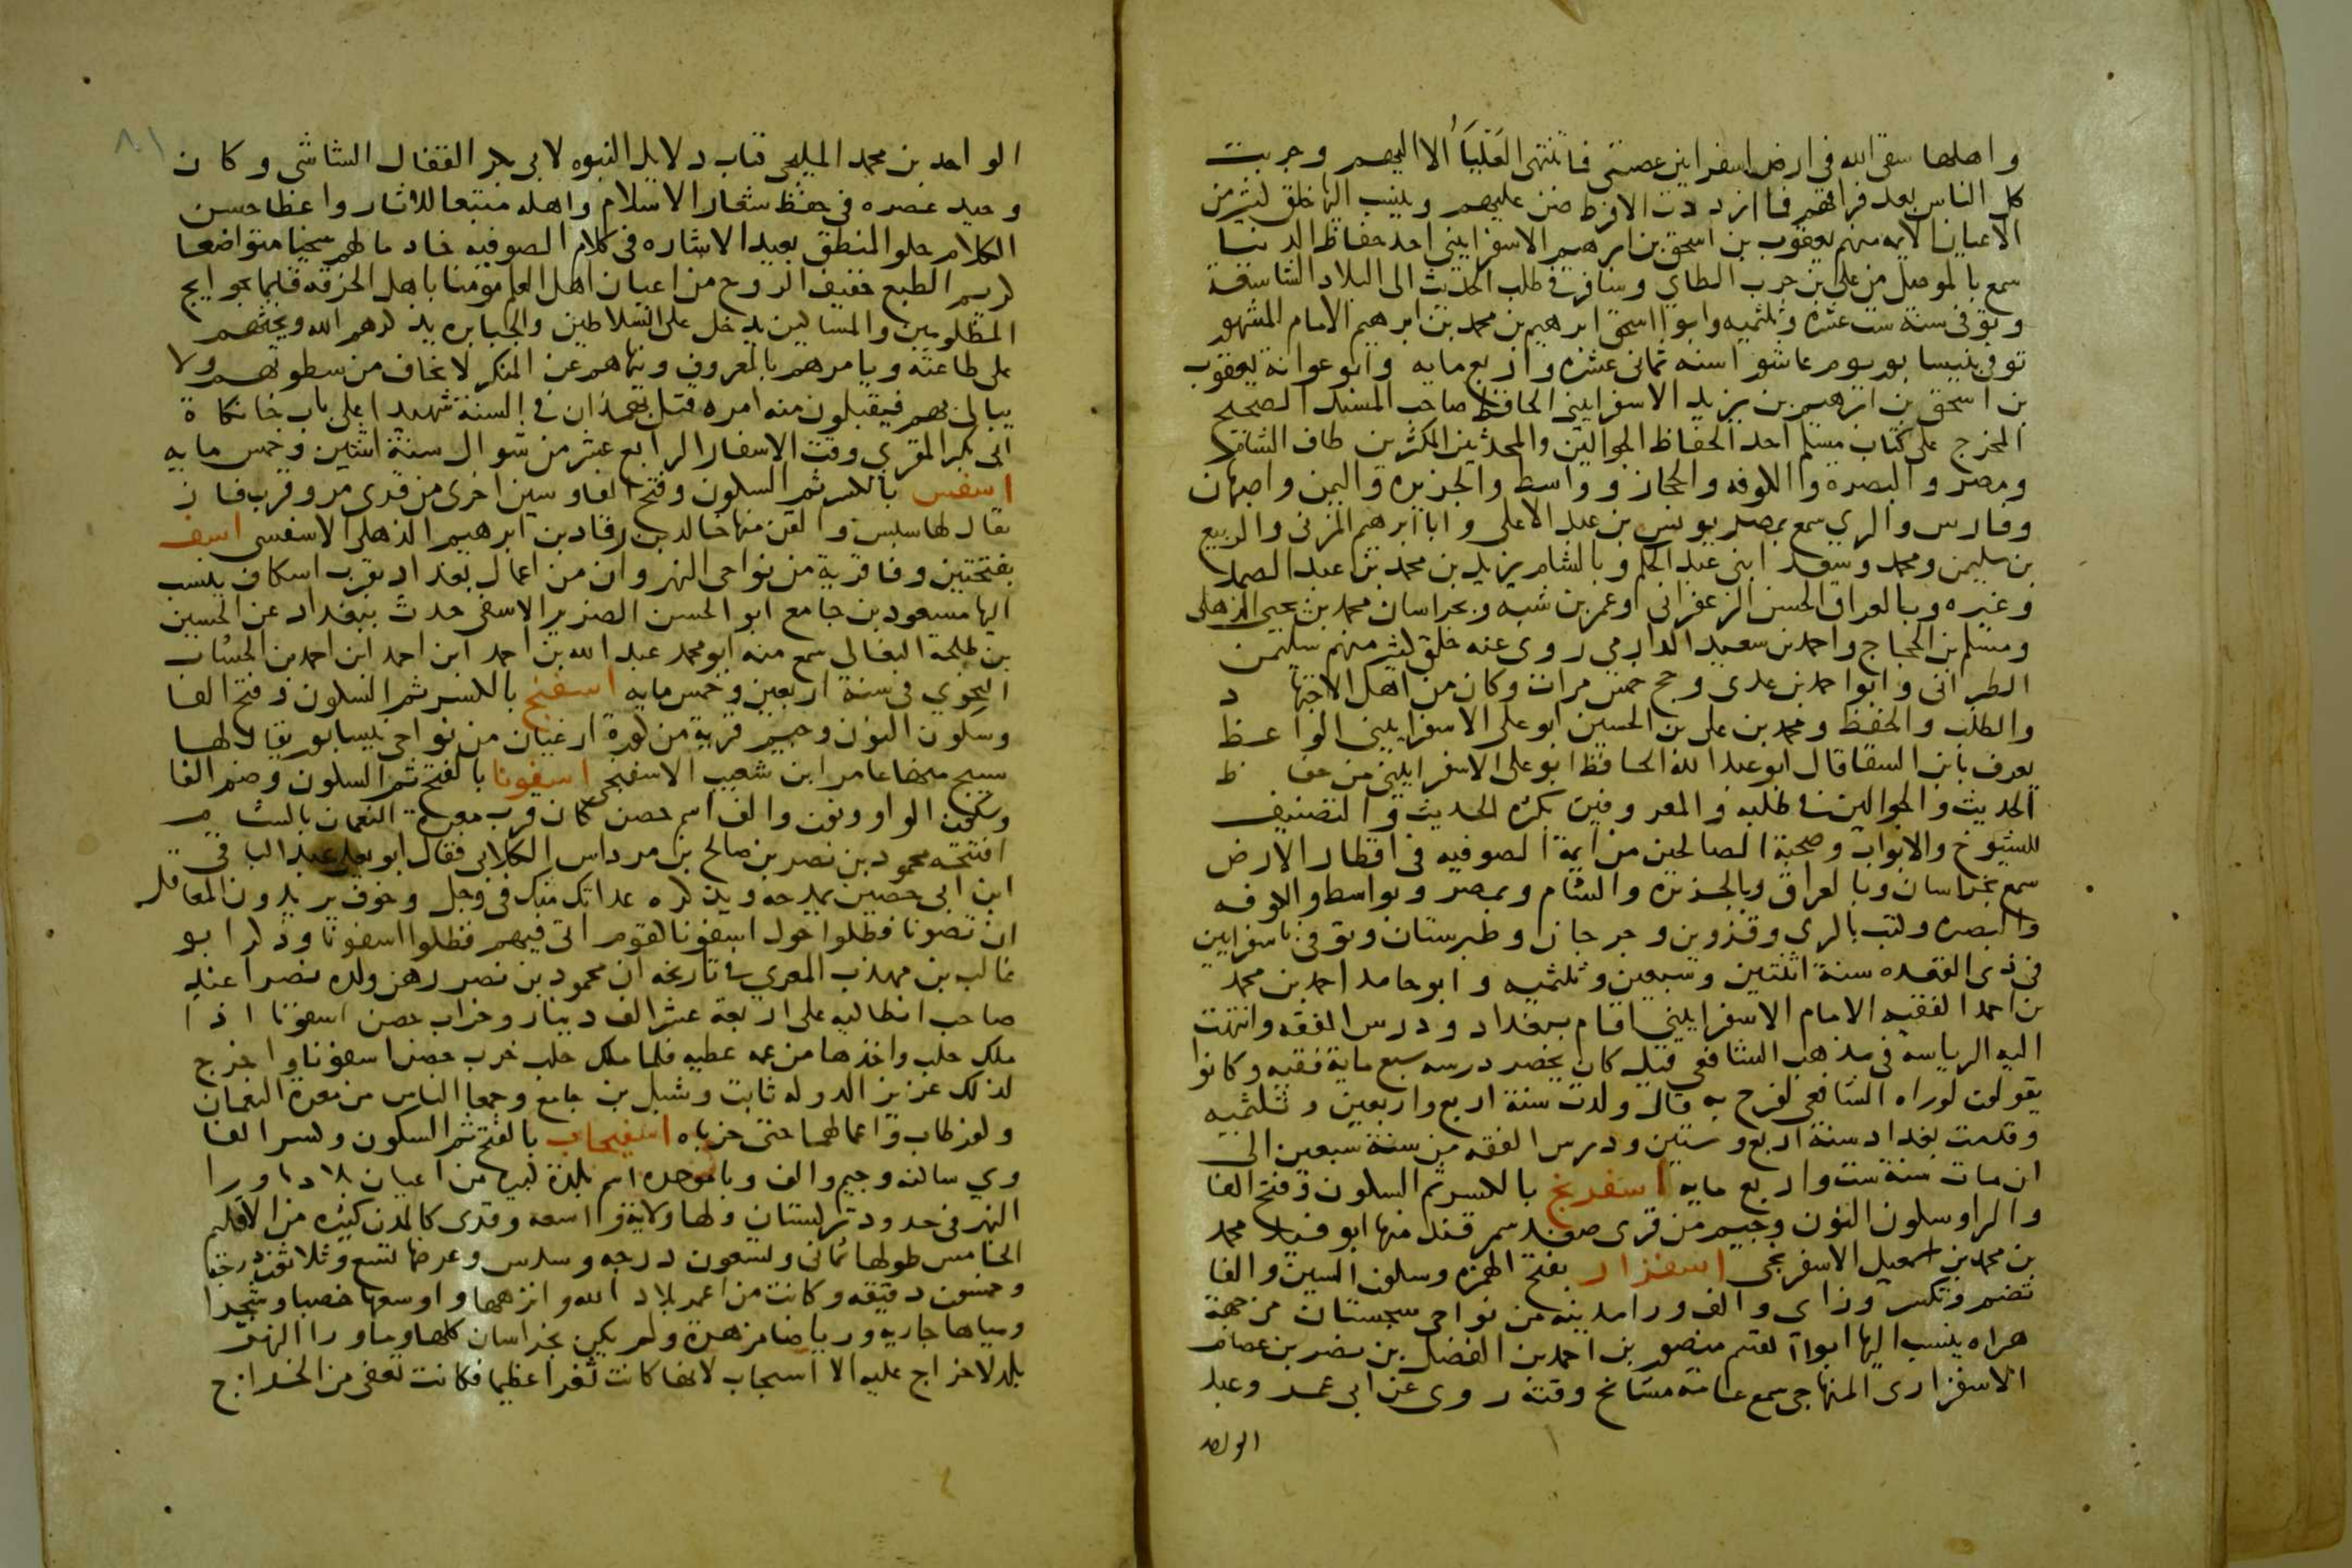 واهلها سقى الله فى ارض اسفراين عصبتى فما تنتهى العَلْيَاُ الا اليهم وجربت
كل الناس بعد فراقهم فما ازددت الا فرط ضن عليهم وينسب اليها خلق كثير من
الاعيان الايمه منهم يعقوب بن اسحق بن ابرهيم الاسفراينى احد حفاظ الدنيا
سمع بالموصل من على بن حرب الطاي وسافر فى طلب الحديث الى البلاد الشاسعة
وتوفى سنة ست عشرة وثلثميه وابو اسحق ابرهيم بن محمد بن ابرهيم الامام المشهور
توفى بنيسابور يوم عاشورا سنه ثمانى عشره واربع مايه وابو عوانة يعقوب
بن اسحق بن ابرهيم بن يزيد الاسفراينى الحافظ صاحب المسند الصحيح
المخرج على كتاب مسلم احد الحفاظ الجوالين والمحدثين المكثرين طاف الشام
ومصر والبصرة والكوفه والحجاز وواسط والجزيره واليمن واصبهان
وفارس والري سمع بمصر يونس بن عبد الاعلى وابا ابرهيم المزنى والربيع
بن سليمن ومحمد وسعد ابنى عبد الحكم وبالشام يزيد بن محمد بن عبد الصمد
وغيره وبالعراق الحسن الزعفرانى وعمر بن شبه وبخراسان محمد بن يحيى الذهلى
ومسلم بن الحجاج واحمد بن سعيد الدارمي روى عنه خلق كثير منهم سليمن
الطبرانى وابو احمد بن عدى وحج خمس مرات وكان من اهل الاجتهاد
والطلب والحفظ ومحمد بن على بن الحسين ابو على الاسفراينى الواعظ
يعرف بابن السقا قال ابو عبد الله الحافظ ابو على الاسفراينى من حفاظ
الحديث والجوالين فى طلبه والمعروفين بكثرة الحديث والتصنيف
للشيوخ والابواب وصحبة الصالحين من ايمة الصوفيه فى اقطار الارض
سمع بخراسان وبالعراق وبالجزيره والشام وبمصر وبواسط والكوفه
والبصره وكتب بالري وقزوين وجرجان وطبرستان وتوفى باسفراين
فى ذى القعده سنة اثنتين وسبعين وثلثميه وابو حامد احمد بن محمد
بن احمد الفقيه الامام الاسفراينى اقام ببغداد ودرس الفقه وانتهت
اليه الرياسة فى مذهب الشافعى قيل كان يحضر درسه سبع ماية فقيه وكانوا
يقولون لوراه الشافعى لفرح به قال ولدت سنة اربع واربعين وثلثميه
وقدمت بغداد سنة اربع وستين ودرس الفقه من سنة سبعين الى
ان مات سنة ست واربع مايه اسفرنج بالكسر ثم السكون وفتح الفا
والرا وسكون النون وجيم من قرى صغد سمرقند منها ابو فيد محمد
بن محمد بن اسمعيل الاسفرنجى اسفزار بفتح الهمزه وسكون السين والفا
تضم وتكسر وزاى والف ورا مدينه من نواحى سجستان من جهة
هراه ينسب اليها ابو القسم منصور بن احمد بن الفضل بن نصر بن عصام
الاسفزارى المنهاجى سمع عامة مشايخ وقته روى عن ابى عمر وعبد
الواحد
٨١
الواحد بن محمد المليحى كتاب دلايل النبوه لابى بكر القفال الشاشى وكان
وحيد عصره فى حفظ شعار الاسلام واهله متبعا للاثار واعظا حسن
الكلام حلو المنطق بعيد الاشاره فى كلام الصوفيه خادما لهم سخيا متواضعا
كريم الطبع خفيف الروح من اعيان اهل العلم مومنا باهل الخرقه قايما بحوايج
المظلومين والمساكين يدخل على السلاطين والجبابره يذكرهم الله ويحثهم
على طاعته ويامرهم بالمعروف وينهاهم عن المنكر لا يخاف من سطوتهم ولا
يبالى بهم فيقبلون منه امره قتل بهمذان فى السنة شهيدا على باب خانكاة
ابى بكر المقري وقت الاسفار الرابع عشر من شوال سنة اثنين وخمس مايه
اسفس بالكسر ثم السكون وفتح الفا وسين اخرى من قرى مرو قرب فاز
يقال لها سبس والقن منها خالد بن رقاد بن ابرهيم الذهلى الاسفسى اسف
بفتحتين وفا قرية من نواحى النهروان من اعمال بغداد بقرب اسكاف ينسب
اليها مسعود بن جامع ابو الحسن الضرير الاسفى حدث ببغداد عن الحسين
بن طلحة النعالى سمع منه ابو محمد عبد الله بن احمد ابن احمد ابن احمد بن الخشاب
النحوي فى سنة اربعين وخمس مايه اسفنج بالكسر ثم السكون وفتح الفا
وسكون النون وجيم قرية من كورة ارغيان من نواحى نيسابور يقال لها
سبنج منها عامر ابن شعيب الاسفنجى اسفونا بالفتح ثم السكون وضم الفا
وسكون الواو ونون والف اسم حصن كان قرب معرة النعمان بالشام
افتتحه محمود بن نصر بن صالح بن مرداس الكلابى فقال ابو يعلى عبد الباقى
ابن ابى حصين يمدحه ويذكره عداتك منك فى وجل وخوف يريدون المعاقل
ان تصونا فظلوا حول اسفونا كقوم اتى فيهم فظلوا اسفونا وذكر ابو
غالب بن مهذب المعري فى تاريخه ان محمود بن نصر رهن ولده نصرا عند
صاحب انطاكيه على اربعة عشر الف دينار وخراب حصن اسفونا اذا
ملك حلب واخذها من عمه عطيه فلما ملك حلب خرب حصن اسفونا واخرج
لذلك عزيز الدوله ثابت وشبل بن جامع وجمعا الناس من معرة النعمان
وكفرطاب واعمالهما حتى خرباه اسفيجاب بالفتح ثم السكون وكسر الفا
ويا ساكنه وجيم والف وبا موحده اسم بلدة كبيره من اعيان بلاد ما ورا
النهر فى حدود تركستان ولها ولاية واسعه وقرى كالمدن كثيره من الاقليم
الخامس طولها ثمانى وتسعون درجه وسدس وعرضها تسع وثلاثون درجة
وخمسون دقيقه وكانت من اعمر بلاد الله وانزهها واوسعها خصبا وشجرا
ومياها جاريه ورياضا مزهرة ولم يكن بخراسان كلها وما ورا النهر
بلد لا خراج عليه الا اسبيجاب لانها كانت ثغرا عظيما فكانت تعفى من الخراج